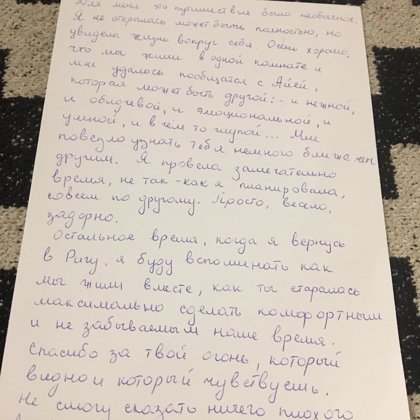 Для меня это путишествие было необычное.
Я не открылась может быть полностью, но
увидела жизнь вокруг себя. Очень хорошо,
что мы жили в одной комнате и
мне удалось пообщатся с Айей,
которая может быть другой: - и нежной,
и обидчивой, и эмоциональной, и
умной, и в чем то глупой... Мне
повезло узнать тебя немного ближе чем
другим. Я провела замечательно
время, не так - как я планировала,
совсем по другому. Просто, весело,
задорно.
Остальное время, когда я вернусь
в Ригу, я буду вспоминать как
мы жили вместе, как ты старалась
максимально сделать комфортным
и не забываемым наше время.
Спасибо за твой огонь, который
видно и который чувствуешь.
Не смогу сказать ничего плохого